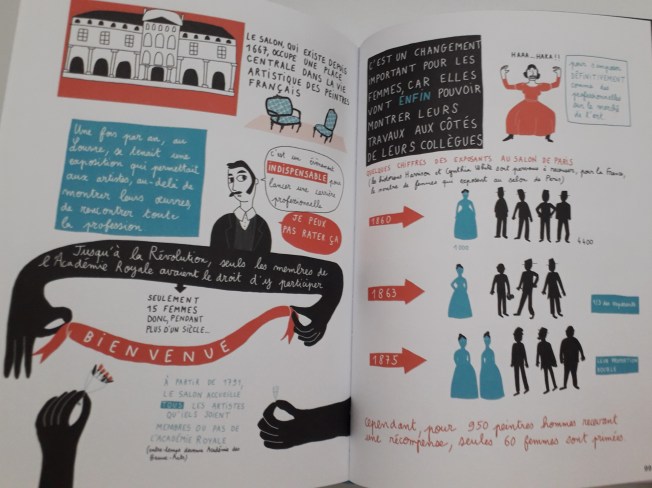 LE SALON, QUI EXISTE DEPUIS
1667, OCCUPE UNE PLACE
CENTRALE DANS LA VIE
ARTISTIQUE DES PEINTRES
FRANÇAIS
Une fois par an, au
Louvre, se tenait une
exposition qui permettait
aux artistes, au-delà de
montrer leurs œuvres,
de rencontrer toute
la profession
C'est un événement
INDISPENSABLE pour
lancer une carrière
professionnelle
JE PEUX
PAS RATER ÇA
Jusqu'à la Révolution, seuls les membres de
l'Académie Royale avaient le droit d'y participer
SEULEMENT
15 FEMMES
DONC, PENDANT
PLUS D'UN SIÈCLE...
BIENVENUE
À PARTIR DE 1791,
LE SALON ACCUEILLE
TOUS LES ARTISTES
QU'ILS SOIENT
MEMBRES OU PAS DE
L'ACADÉMIE ROYALE
(entre-temps devenue Académie des
Beaux-Arts)
C'EST UN CHANGEMENT
IMPORTANT POUR LES
FEMMES, CAR ELLES
VONT ENFIN POUVOIR
MONTRER LEURS
TRAVAUX AUX CÔTÉS
DE LEURS COLLÈGUES
HARA... HARA!!
pour s'imposer
DÉFINITIVEMENT
comme des
professionnelles
sur le marché
de l'art
QUELQUES CHIFFRES DES EXPOSANTS AU SALON DE PARIS
(les historiens Harrison et Cynthia White sont parvenus à recenser, pour la France,
le nombre de femmes qui exposent au salon de Paris)
1860
1863
1875
Cependant, pour 950 peintres hommes recevant
une récompense, seules 60 femmes sont primées.